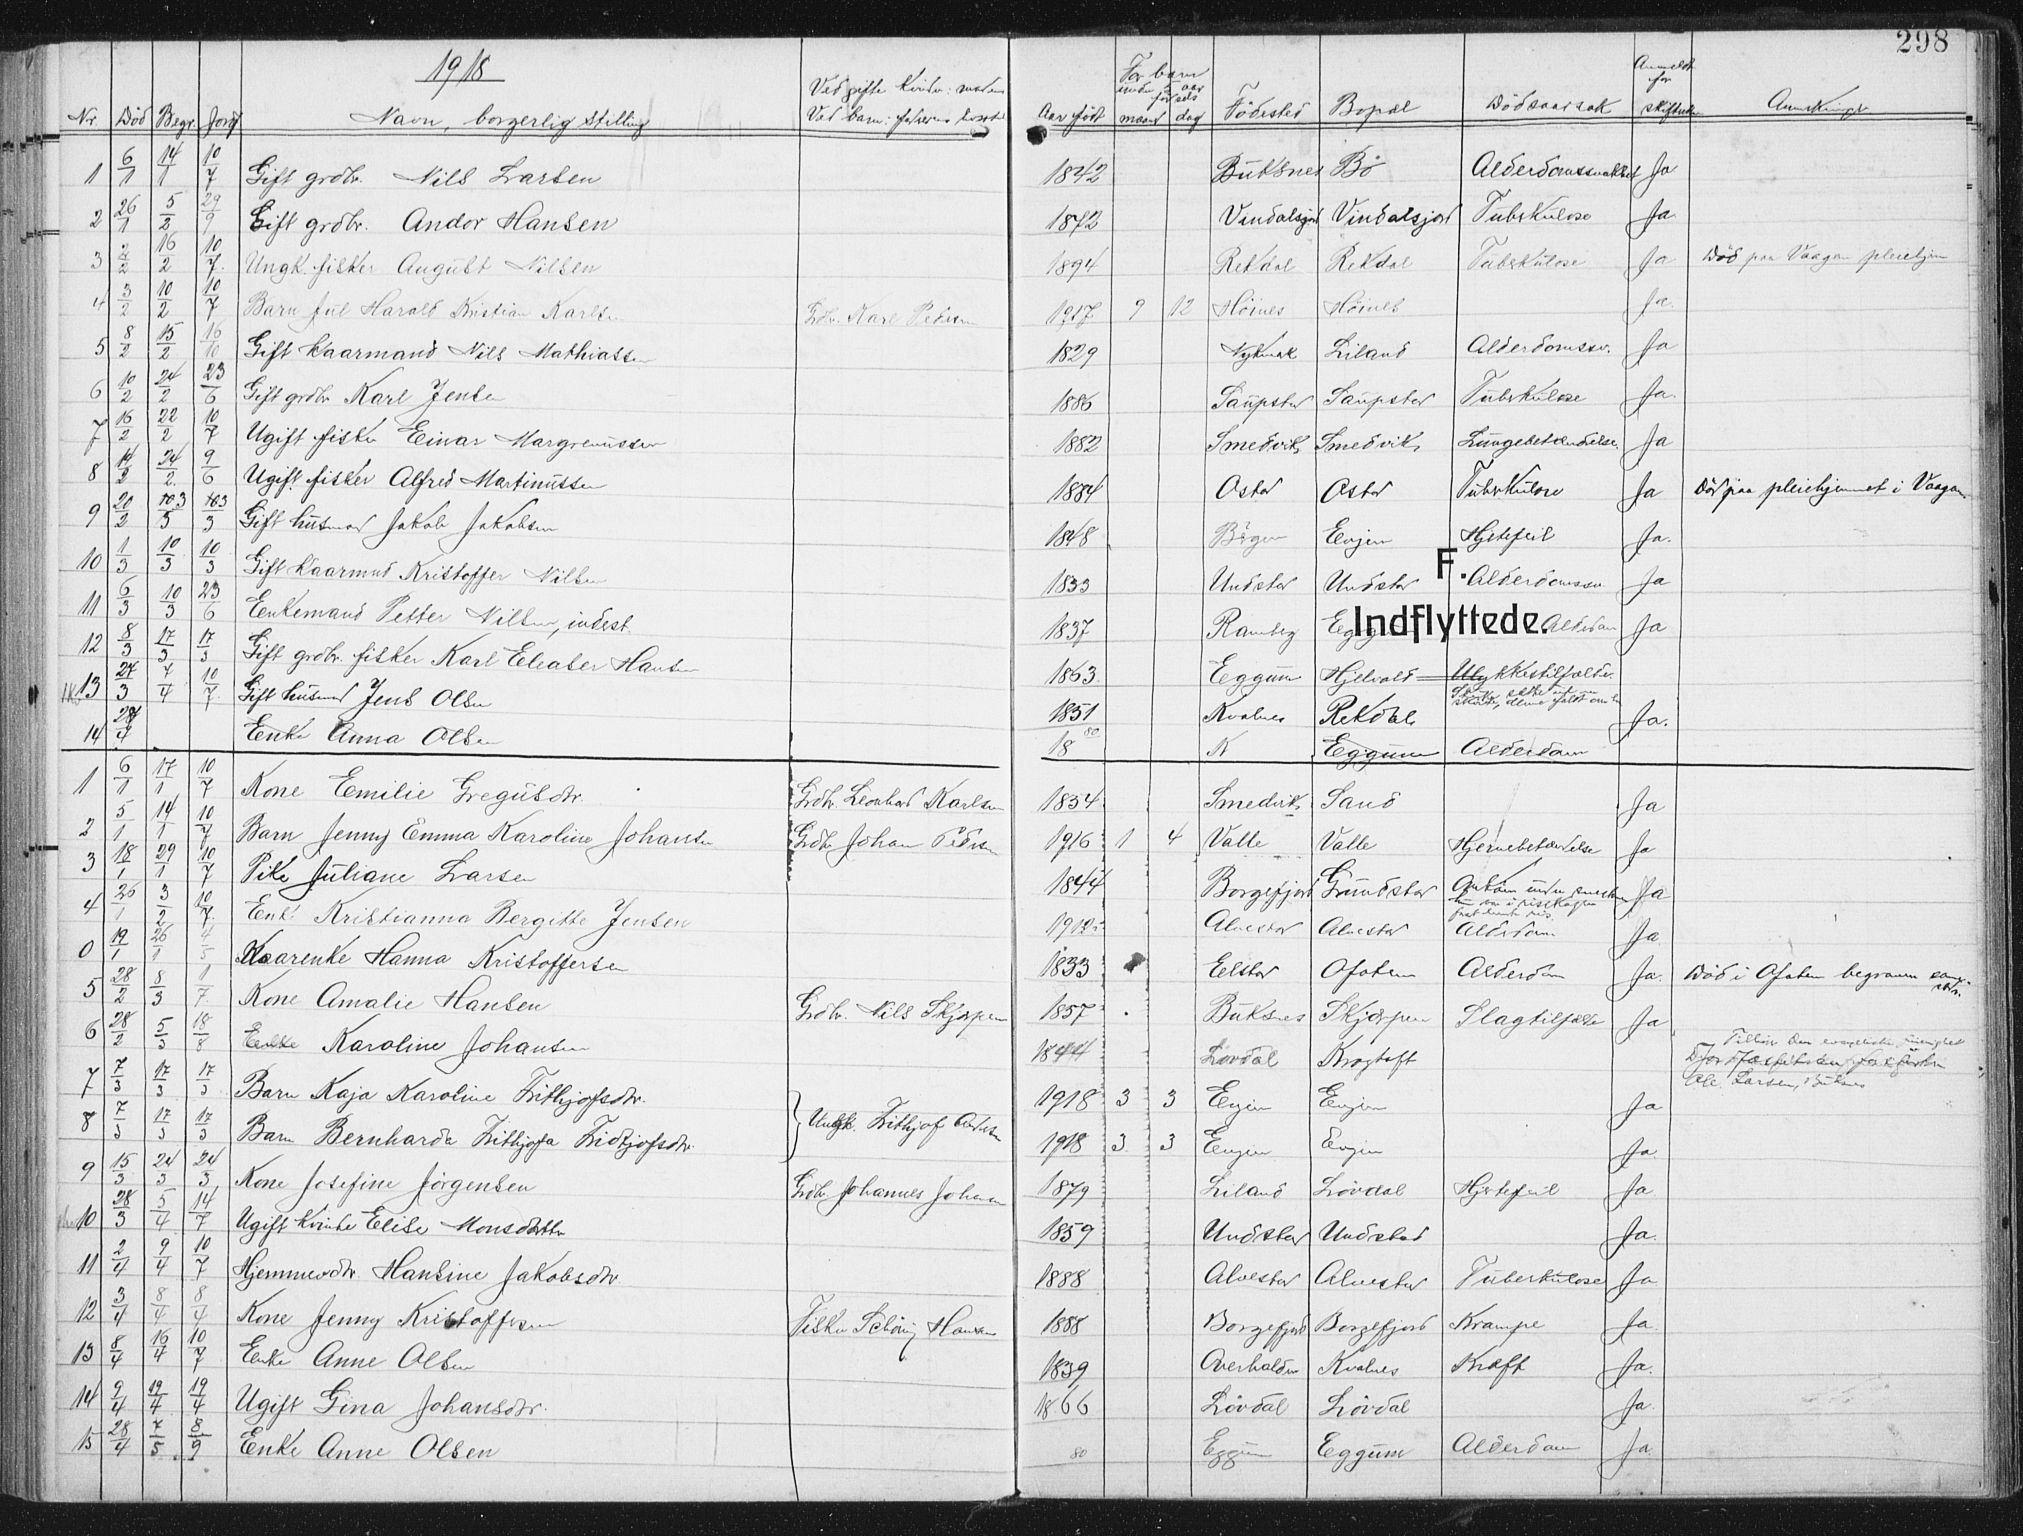 298
1918
Nr. Død Begr. Jordf. Navn, borgerlig stilling Ved gifte kvinder: Ved barn: faderens Aar født For barn maand dag Fødested Bopæl Dødsaarsak Anmeldt for skifteretten Anmerkninger
1 6/1 14/1 10/7 Gift grdbr. Nils Larsen 1842 Buksnes Bø Ja
2 26/1 5/2 29/9 Gift grdbr. Andor Hansen 1872 Vindalsjord Vindalsjord Tuberkulose Ja
3 2/2 16/2 10/7 Ungk. fisker August Nilsen 1894 Rekdal Rekdal Tuberkulose Ja Død paa Vaagan pleiehjem
4 3/2 10/2 10/7 Barn Jul Harald Kristian Karlsen Grdbr. Karl Pedersen 1917 9 12 Høines Høines Ja
5 8/2 15/2 16/10 Gift kaarmand Nils Mathiassen 1829 Liland Alderdomssv. Ja
6 10/2 24/2 23/6 Gift grdbr Karl Jensen 1886 Saupstad Saupstad Tuberkulose Ja
7 16/2 22/2 10/7 Ugift fisker Einar Margrenussen 1882 Smedvik Smedvik Lungebetændelse Ja
8 19/2 24/2 9/6 Ugift fisker Alfred Martinussen 1884 Ostad Ostad Tuberkulose Ja Død paa pleiehjemmet i Vaagan
9 20/2 3 3 Gift husmand Jakob Jakobsen 1848 Evjen Hjertefeil Ja.
10 1/3 10/3 10/3 Gift kaarmand Kristoffer Nilsen 1833 Undstad Undstad Alderdomssv Ja
F.
11 6/3 10/3 23/6 Enkemand Petter Nilsen, inderst 1837 Ramberg Alderdom Ja
Indflyttede.
12 8/3 17/3 17/3 Gift grdbr. fisker Karl Eleaser Hansen 1863 Eggum Hjelvold Ulykkestilfælde
13 24/3 7/4 10/7 Gift husmand Jens Olsen 1851 Kvalnes Rekdal Ja.
14 28/4 Enke Anna Olsen 18 80 Eggum Alderdom
1 6/1 17/1 10/7 Kone Emilie Gregusdtr. Grdbr. Leonhard Karlsen 1854 Smedvik Sand Ja
2 5/1 14/1 10/7 Barn Jenny Emma Karoline Johansen Grdbr Johan Pedersen 1916 1 4 Valle Valle Hjernebetændelse Ja
3 18/1 29/1 10/7 Pike Juliane Larsen 1844 Borgefjord Grundstad Ja
4 26/1 3/2 10/7 Enke Kristianna Bergitte Jensen Alvestad Alvestad Alderdom Ja
0 19/1 26/1 4/5 Kaarenke Hanna Kristoffersen 1833 Eelstad Ofoten Alderdom Ja. Død i Ofoten begraven
5 28/2 8/3 1/7 Kone Amalie Hansen Grdbr. Nils Skjerpen 1857 Buksnes Skjerpen Slagtilfælde Ja
6 28/2 5/3 18/8 Enke Karoline Johansen 1844 Lövdal Krogtoft
Ole Larsen, Buknes
7 7/3 17/3 17/3 Barn Kaja Karoline Frithjofsdtr. 1918 3 3 Evjen Evjen Ja
Ungk. Frithjof
8 7/3 17/3 17/3 Barn Bernharda Frithjofa Fridtjofsdtr 1918 3 3 Evjen Evjen Ja.
9 15/3 24/3 24/3 Kone Josefine Jörgensen Grdbr. Johannes Johansen 1879 Liland Lövdal Hjertefeil Ja
10 28/3 5/4 14/7 Ugift kvinde Elise Monsdatter 1859 Undstad Undstad Ja.
11 2/4 9/4 10/7 Hjemmevdtr Hansine Jakobsdtr 1888 Alvestad Alvestad Tuberkulose Ja
12 3/4 8/4 8/4 Kone Jenny Kristoffersen Fisker Hansen 1888 Borgefjord Borgefjord Krampe Ja
13 8/4 16/4 10/7 Enke Anne Olsen 1839 Overhalden Kvalnes Kræft Ja.
14 9/4 19/4 19/4 Ugift Gina Johansdtr. 1866 Lövdal Lövdal Ja.
15 28/4 7/5 8/9 Enke Anne Olsen 80 Eggum Eggum Alderdom Ja.